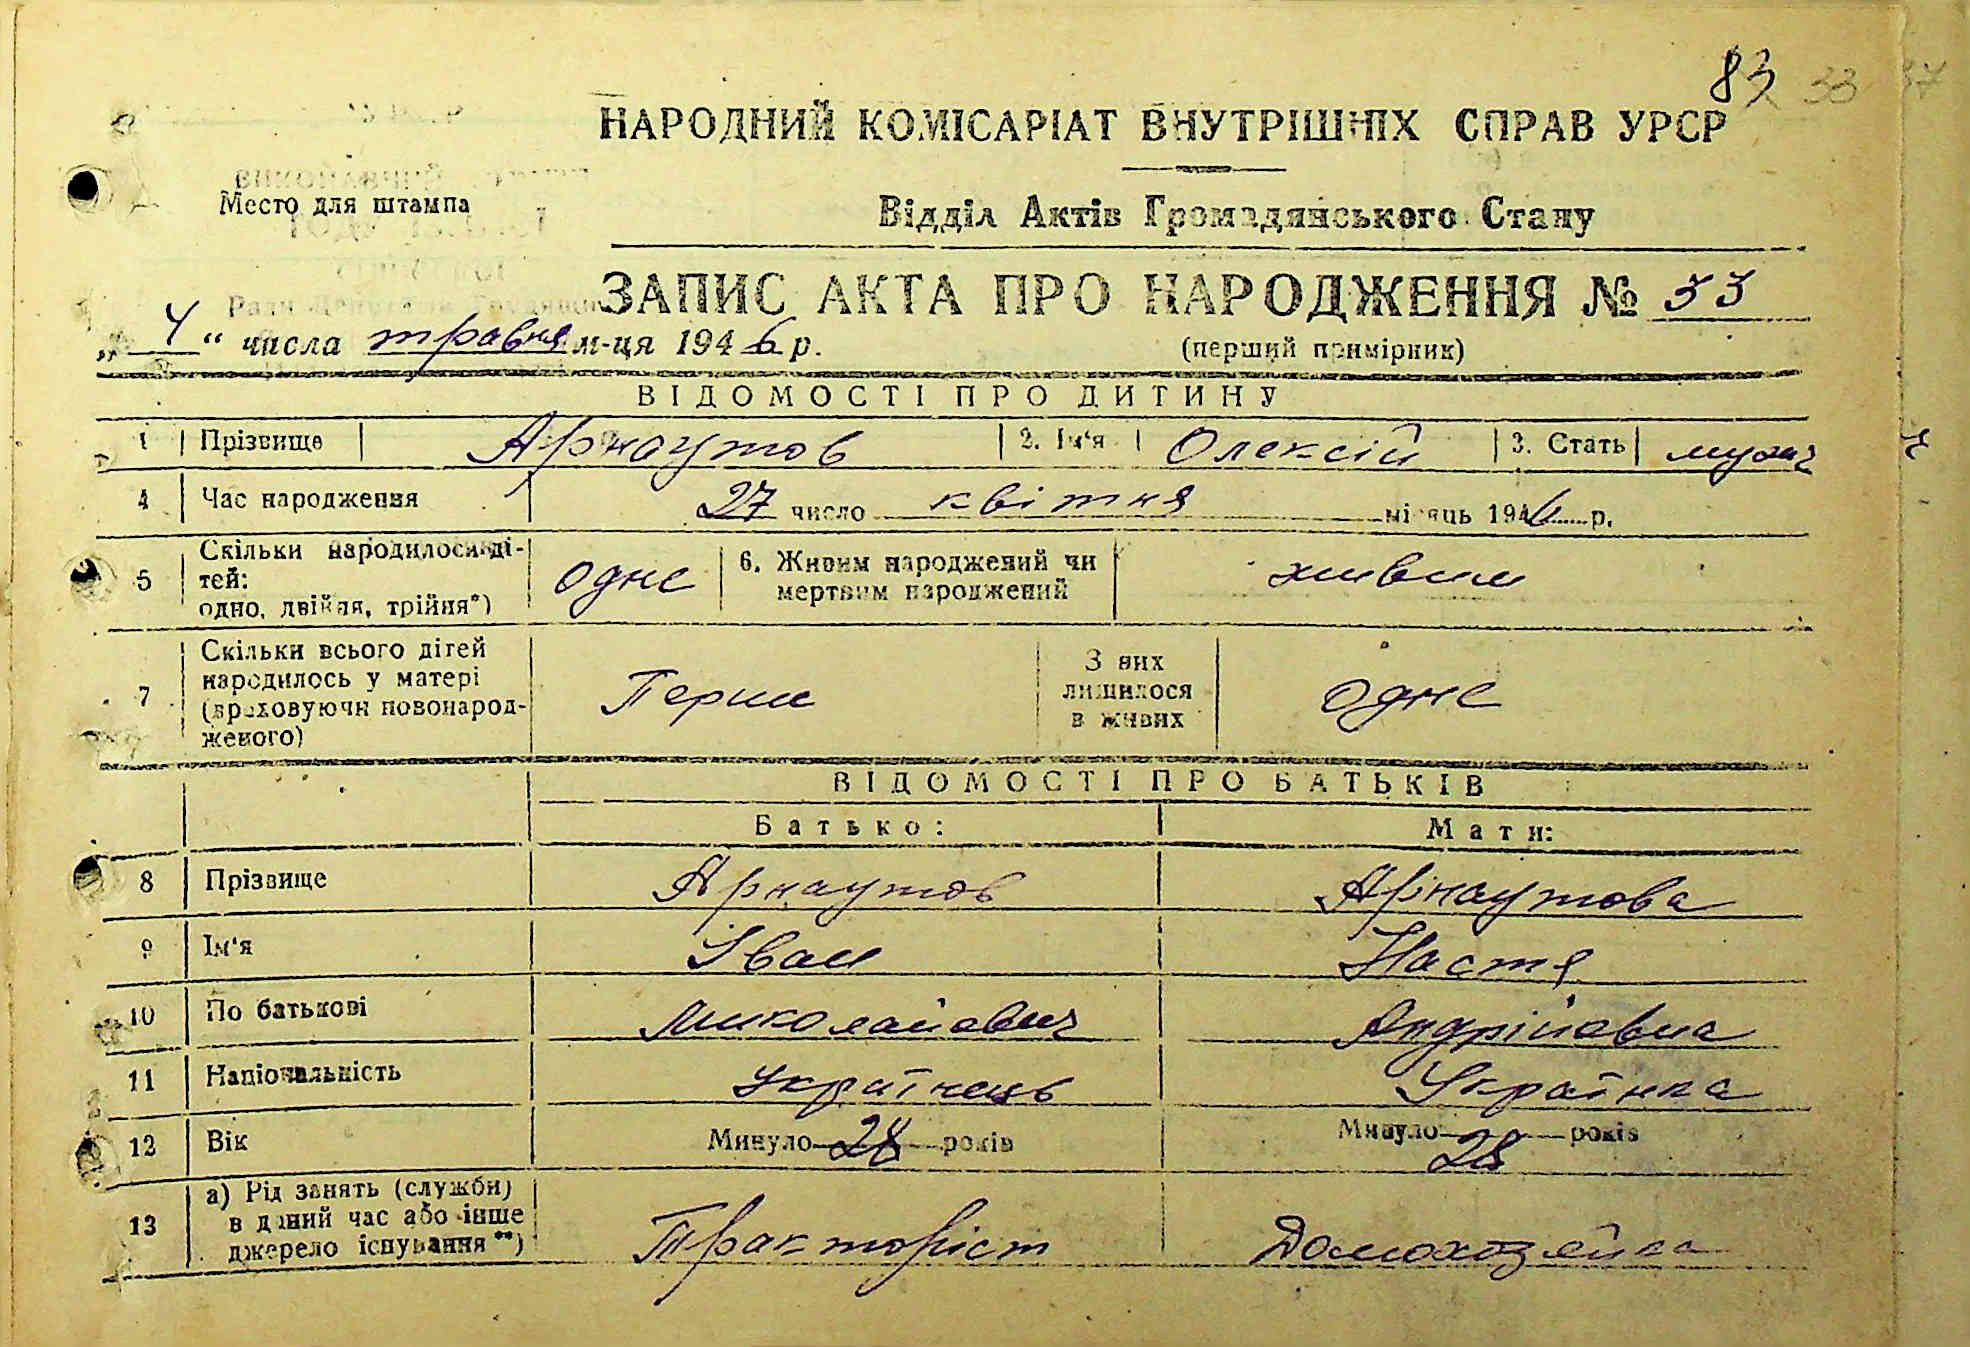 83 33 37
НАРОДНИЙ КОМІСАРІАТ ВНУТРІШНІХ СПРАВ УРСР
Место для штампа
Відділ Актів Громадянського Стану
ЗАПИС АКТА ПРО НАРОДЖЕННЯ № 33
„ 4 “ числа травня м-ця 1946 р.
(перший примірник)
ВІДОМОСТІ ПРО ДИТИНУ
1 Прізвище Арнаутов 2. Ім‘я Олексій 3. Стать мужч
4 Час народження 27 число квітня місяць 1946 р.
5 Скільки народилося ді-
тей:
одно, двійня, трійня*) одне 6. Живим народжений чи
мертвим народжений живим
7 Скільки всього дітей
народилось у матері
(враховуючи новонарод-
женого) Перши З них
лишилося
в живих одне
ВІДОМОСТІ ПРО БАТЬКІВ
Батько: Мати:
8 Прізвище Арнаутов Арнаутова
9 Ім‘я Іван Настя
10 По батькові Миколайович Андрійовна
11 Національність Українець Українка
12 Вік Минуло 28 років Минуло 28 років
13 а) Рід занять (служби)
в даний час або інше
джерело існування**) Тракторіст Домохозяйка